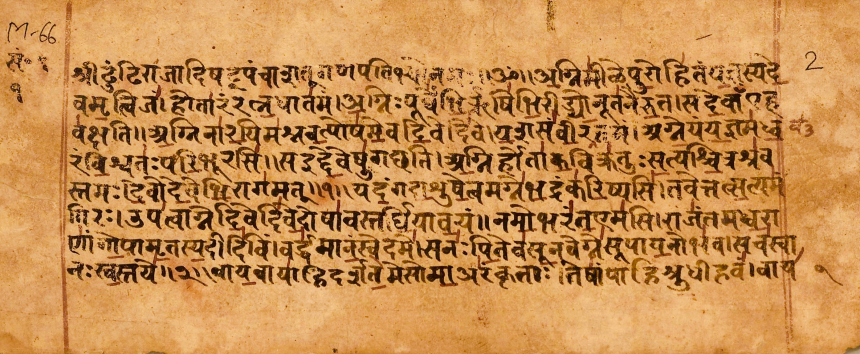 M-66
2
श्रीढुंढिराजादिषट्पंचाशत्गणपतिभ्योनमः॥ॐ॥अग्निमीळेपुरोहितंयज्ञस्यदे
वमृत्विजं।होतारंरत्नधातमं।अग्निःपूर्वेभिर्ऋषिभिरीड्योनूतनैरुत।सदेवाँएह
वक्षति॥अग्निनारयिमश्नवत्पोषमेवदिवेदिवे।यशसंवीरवत्तमं।अग्नेयंयज्ञमध्व
रंविश्वतःपरिभूरसि॥सइद्देवेषुगच्छति।अग्निर्होताकविक्रतुःसत्यश्चित्रश्रव
स्तमः।देवोदेवेभिरागमत्॥१॥यदंगदाशुषेत्वमग्नेभद्रंकरिष्यसि।तवेत्तत्सत्यमं
गिरः।उपत्वाग्नेदिवेदिवेदोषावस्तर्धियावयं॥नमोभरंतएमसि।राजंतमध्वरा
णांगोपामृतस्यदीदिविं।वर्द्धमानंस्वेदमे।सनःपितेवसूनवेग्नेसूपायनोभव।सचस्वा
नःस्वस्तये॥२॥वायवायाहिदर्शतेमेसोमाअरंकृताः।तेषांपाहिश्रुधीहवं।वाय